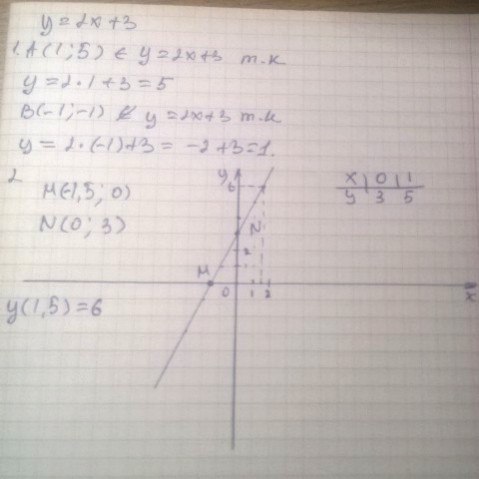 y=2x+3
1. A(1;5) ∈ y=2x+3 т.к
y=2·1+3=5
B(-1;-1) ∉ y=2x+3 т.к
y=2·(-1)+3=-2+3=1.
2
M(-1,5; 0)
N(0; 3)
y
6
x 0 1
y 3 5
N
M
0 1 2
x
y(1,5)=6